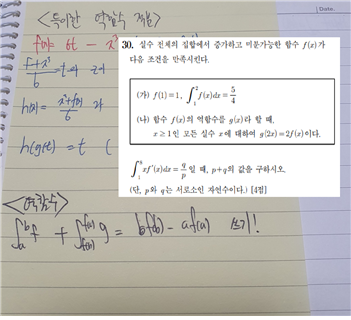 <특이한 역함수 정의>
f(x) = 6t - x³
h(g(t)) = t (
<역함수>
∫ₐᵇ f + ∫_{f(a)}^{f(b)} g = bf(b) - af(a) 쓰기!
30. 실수 전체의 집합에서 증가하고 미분가능한 함수 f(x)가
다음 조건을 만족시킨다.
(가) f(1)=1, ∫₁² f(x)dx = 5/4
(나) 함수 f(x)의 역함수를 g(x)라 할 때,
x≥1인 모든 실수 x에 대하여 g(2x)=2f(x)이다.
∫₁⁸ xf′(x)dx = q/p 일 때, p+q의 값을 구하시오.
(단, p와 q는 서로소인 자연수이다.) [4점]